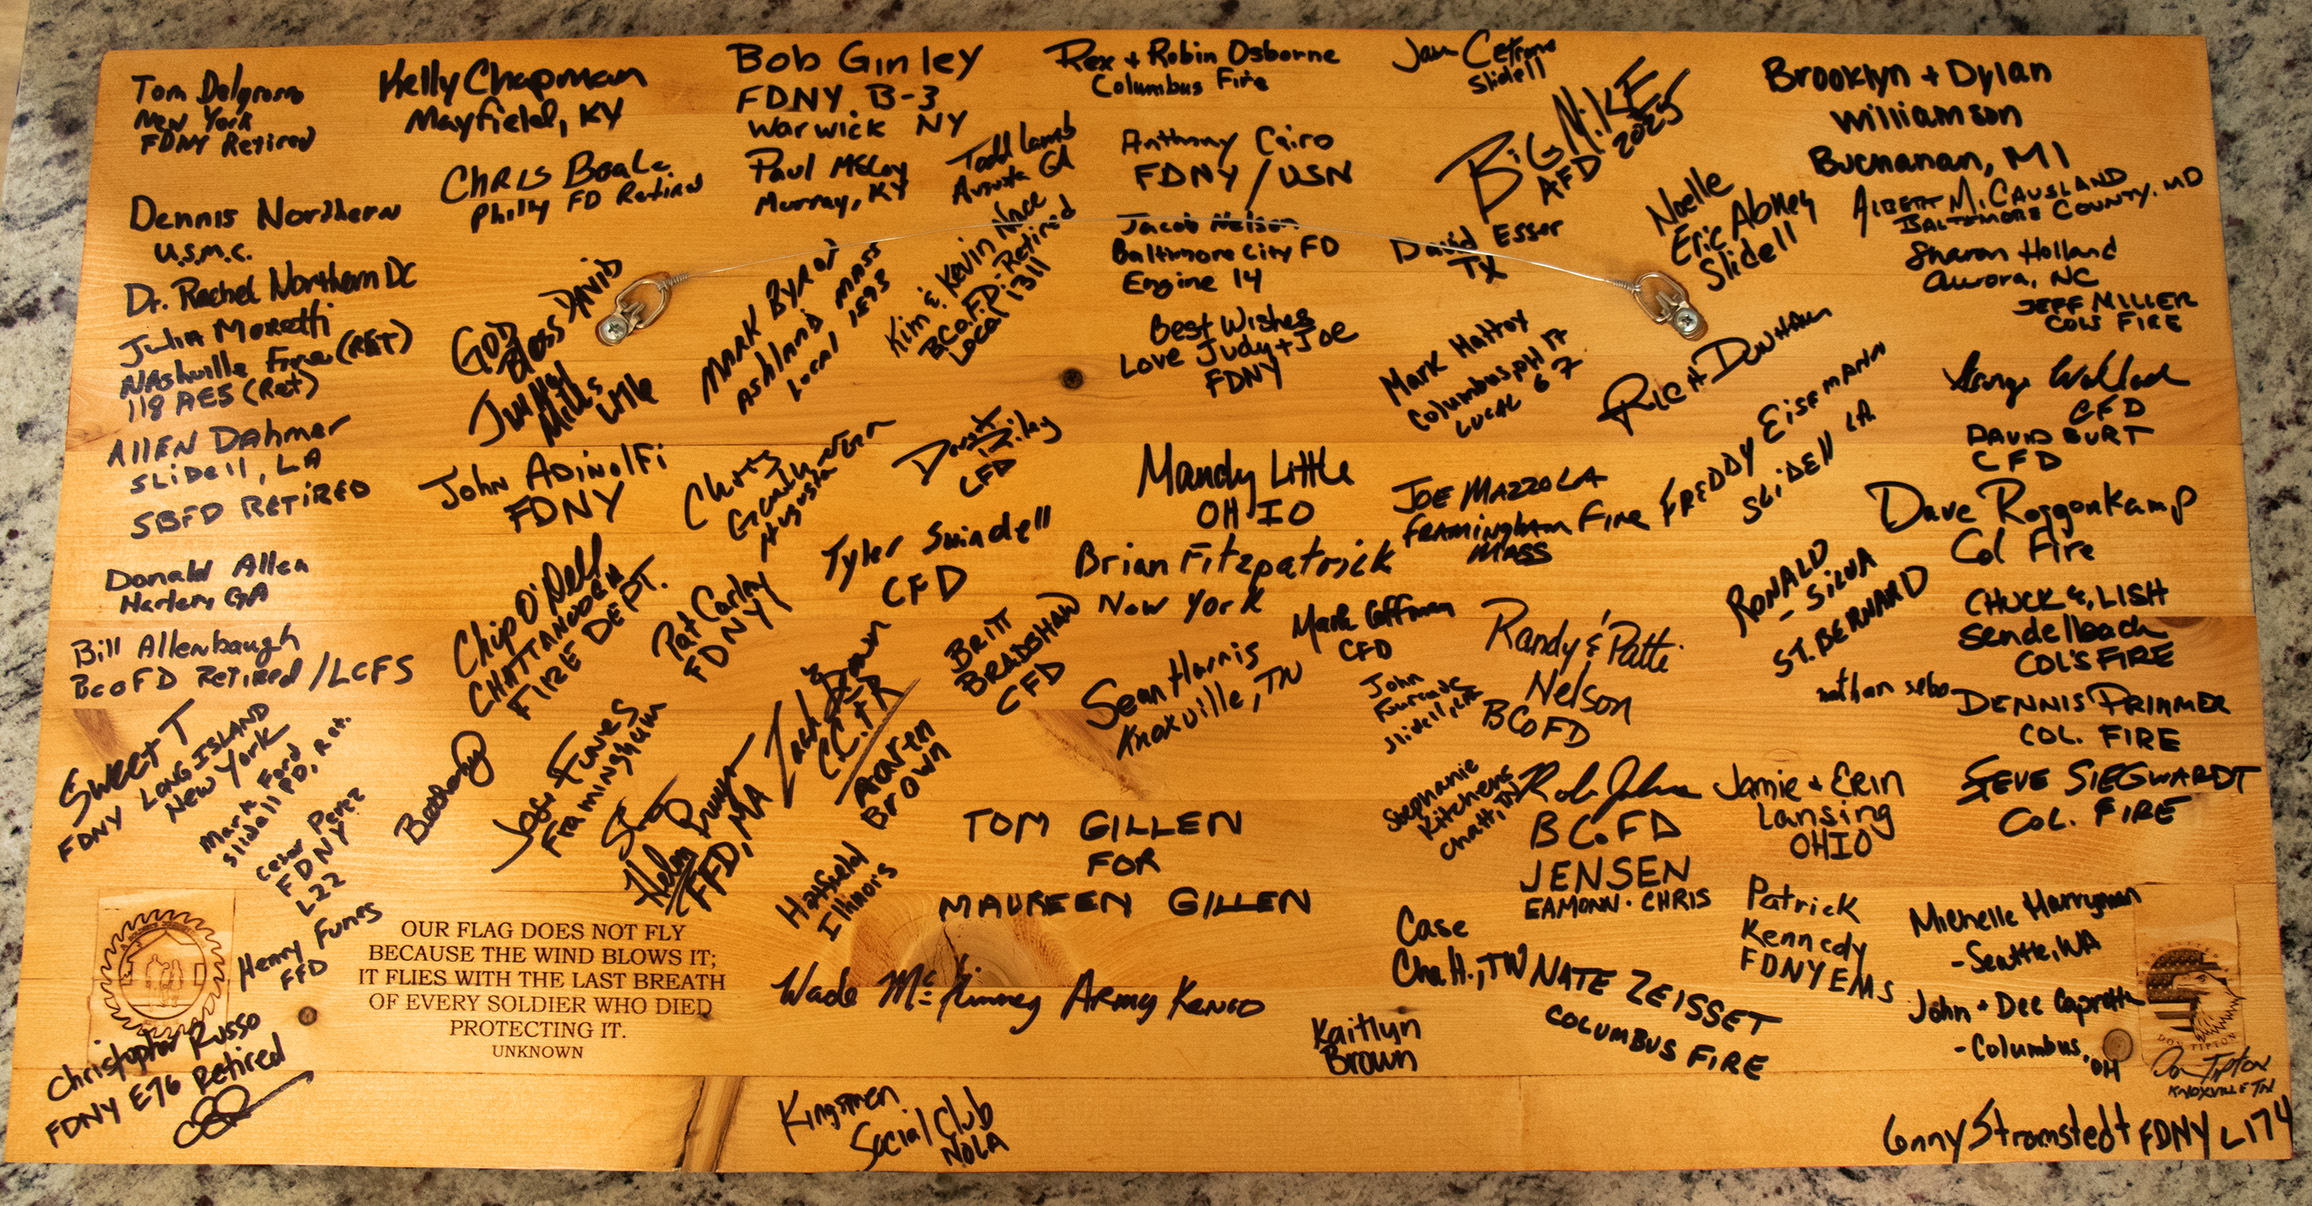 Tom
New York
FDNY Retired
Kelly Chapman
Mayfield, KY
Bob Ginley
FDNY B-3
Warwick NY
Rex + Robin Osborne
Columbus Fire
Slidell
BIG MIKE
AFD 2025
Brooklyn + Dylan
Williamson
Buchanan, MI
Chris
Philly FD Retired
Paul McCoy
Murray, KY
Todd Lamb
Augusta GA
Anthony Cairo
FDNY / USN
Noelle
Eric Abney
Slidell
Albert McCausland
Baltimore County, MD
Dennis Northern
U.S.M.C.
Jacob Nelson
Baltimore City FD
Engine 14
David Esser
TX
Sharon Holland
Aurora, NC
Dr. Rachel Northern DC
God
Bless DAVID
MARK BYRON
Ashland MASS
Local 1893
Kim & Kevin Nace
B.Co.F.D. Retired
Local 1311
JEFF MILLER
COLS FIRE
Julia Moretti
Nashville Fire (RET)
118 AES (Ret)
Best Wishes
Love Judy + Joe
FDNY
Mark Mattox
Columbus, OH
Local 67
RICH DUNHAM
CFD
Allen Dahmer
Slidell, LA
SBFD RETIRED
Mills
John Adinolfi
FDNY
Chris
Augusta
Riley
CFD
Mandy Little
OHIO
JOE MAZZOLA
FRAMINGHAM Fire
MASS
FREDDY Eisemann
SLiDEll LA
DAVID BURT
CFD
Donald Allen
Harlem, GA
Chip O'Dell
CHATTANOOGA
FIRE DEPT.
Pat Carley
FDNY
Tyler Swindell
CFD
Brian Fitzpatrick
New York
RONALD
- SILVA
ST. BERNARD
Dave Roggenkamp
Col Fire
Bill Allenbaugh
BCoFD Retired/LCFS
BRITT
BRADSHAW
CFD
Sean Harris
Knoxville, TN
Mark Coffman
CFD
Randy & Patti
Nelson
BCoFD
CHUCK & LISH
Sendelbach
COL'S FIRE
John
Slidell, LA
nathan sebo
DENNIS PRIMMER
COL. FIRE
SWEET T
FDNY LONG ISLAND
New York
Mark Ford
Slidell PD, Ret.
Cesar Perez
FDNY
L22
Bethany
Jose Funes
Framingham
Helen
FFD, MA
Zach & Dawn
Aaren
Brown
TOM GILLEN
FOR
MAUREEN GILLEN
Stephanie
Kitchens
Chatt, TN
BCoFD
Jamie + Erin
Lansing
OHIO
STEVE SIEGWARDT
COL. FIRE
JENSEN
EAMONN · CHRIS
Henry Funes
FFD
OUR FLAG DOES NOT FLY
BECAUSE THE WIND BLOWS IT;
IT FLIES WITH THE LAST BREATH
OF EVERY SOLDIER WHO DIED
PROTECTING IT.
UNKNOWN
Hatfield
Illinois
Case
Chatt., TN
Patrick
Kennedy
FDNY EMS
Michelle Harryman
-Seattle, WA
Wade McKinney Army
NATE ZEISSET
COLUMBUS FIRE
John + Dee
-Columbus, OH
Christopher Russo
FDNY E-76 Retired
Kaitlyn
Brown
DON TIPTON
Don Tipton
KNOXVILLE TN
Kingsmen
Social Club
NOLA
Stromstedt FDNY L174